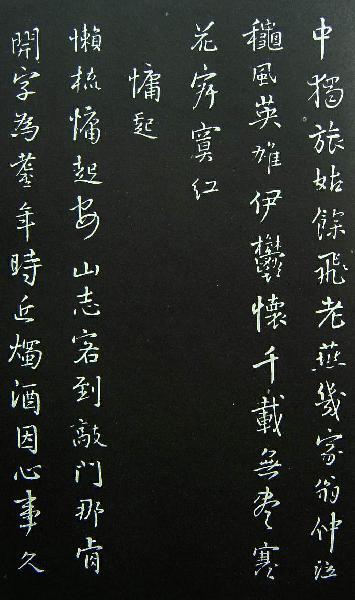 中獨旅姑餘飛老燕幾家翁仲泣
龝風英雄伊鬱懷千載無盡寒
花寂寞红
慵起
懶梳慵起安山志客到敲門那肯
開字為養年時近燭酒因心事久